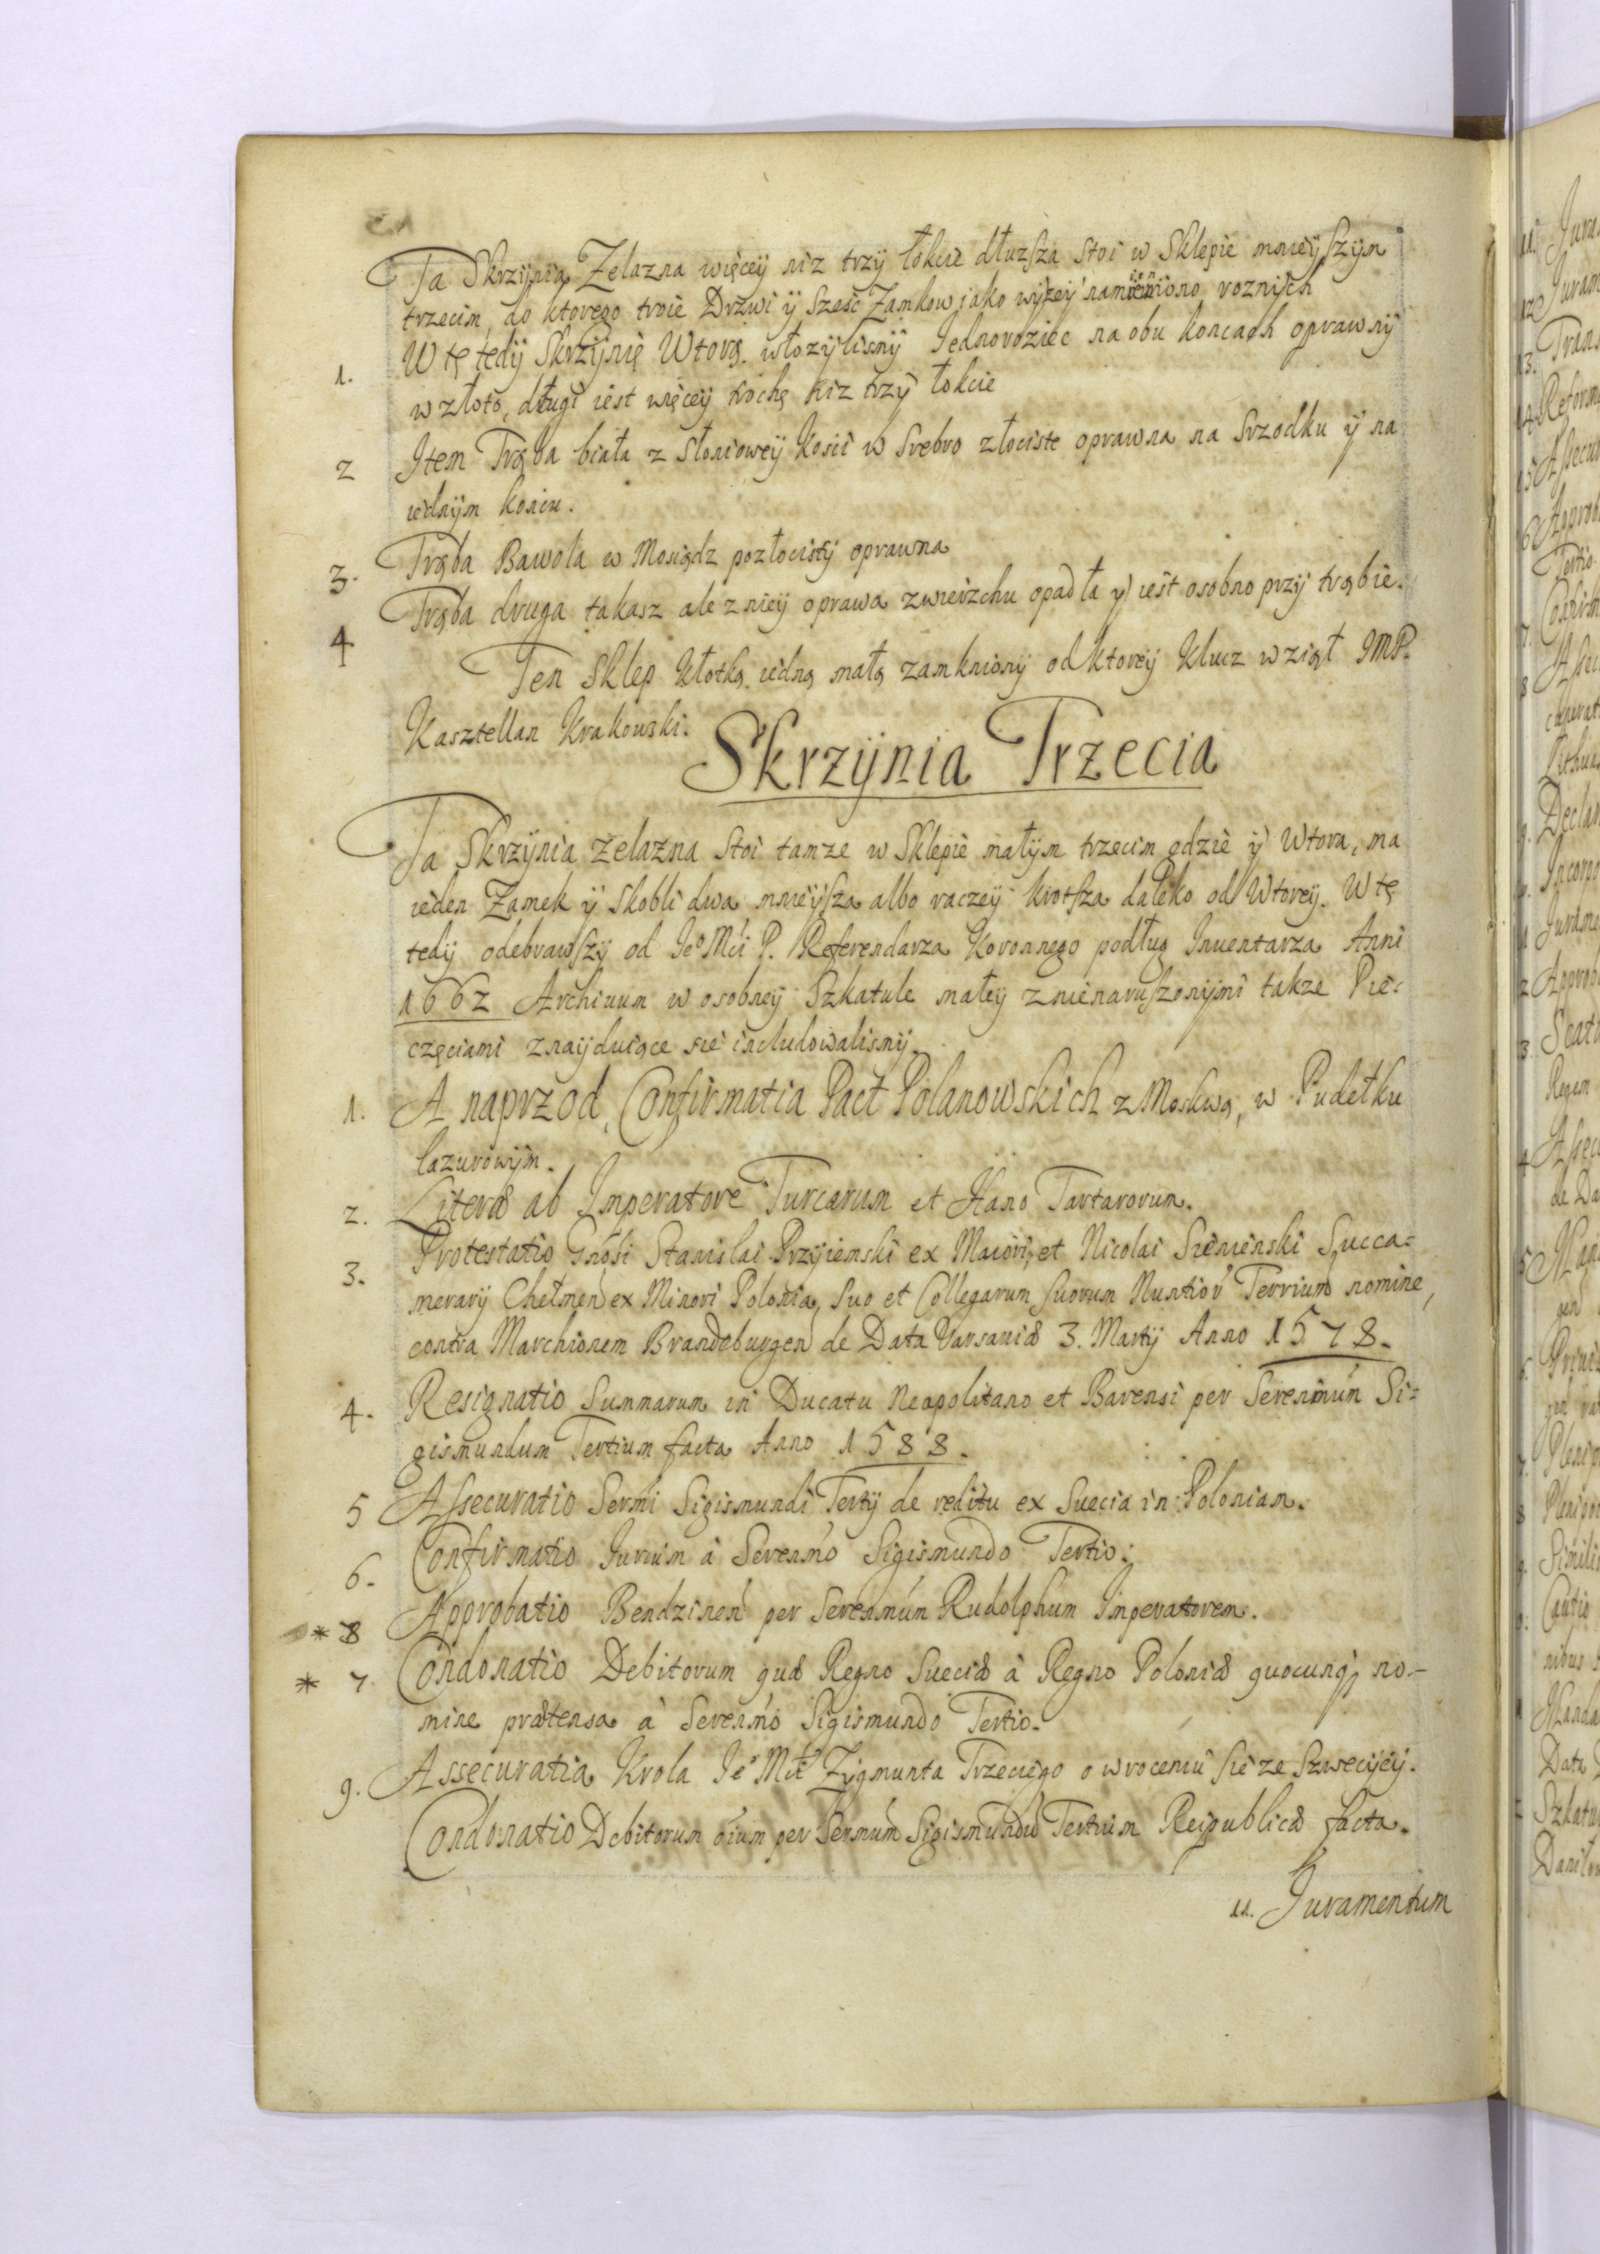 Ta Skrzynia Zelazna więcey niz trzy łokcie dłuzsza stoi w Sklepie mnieyszym
trzecim, do ktorego troie Drzwi y sześc Zamkow jako wyzey namieniono roznych
1. W tę tedy Skrzynię Wtorą włozylismy Jednoroziec na obu koncach oprawny
w złoto, długi iest więcey trochę niz trzy łokcie
2 Item Trąba biała z Słoniowey kosci w srebro złociste oprawna na srzodku y na
iednym koncu.
3. Trąba Bawola w Mosiądz pozłocisty oprawna
4 Trąba druga takasz ale z niey oprawa zwierzchu opadła y iest osobno przy trąbie.
Ten Sklep Kłotką iedną małą zamkniony od ktorey Klucz wziął JMP.
Kasztellan Krakowski.
Skrzynia Trzecia
Ta Skrzynia zelazna stoi tamze w Sklepie małym trzecim gdzie y Wtora, ma
ieden Zamek y skobli dwa mnieysza albo raczey krotsza daleko od Wtorey. W tę
tedy odebrawszy od Ie° Mći P. Referendarza Koronnego podług Inuentarza Anni
1662 Archiuum w osobney Szkatule małey z nienaruszonymi takze Pie-
częciami znayduiące sie includowalismy.
1. A naprzod, Confirmatia Pact Polanowskich z Moskwą, w Pudełku
lazurowym.
2. Literæ ab Imperatore Turcarum et Hano Tartarorum.
3. Protestatio Gnosi Stanislai Przyiemski ex Maiori, et Nicolai Sieninski Succa-
merary Chełmen ex Minori Polonia, suo et Collegarum suorum Nuntior Terrium nomine,
contra Marchionem Brandeburgen de Data Varsauiæ 3. Marty Anno 1578.
4. Resignatio Summarum in Ducatu Neapolitano et Barensi per Serenmún Si-
gismundum Tertium facta Anno 1588.
5 Assecuratio Sermi Sigismundi Terty de reditu ex Suecia in Poloniam.
6. Confirmatio Iurium à Serenmo Sigismundo Tertio.
* 8 Approbatio Bendzinen per Serenmún Rudolphum Imperatorem.
* 7 Condonatio Debitorum quæ Regno Sueciæ à Regno Poloniæ quocunq no-
mine prætensa à Serenmo Sigismundo Tertio.
9. Assecuratia Krola Ie° Mći Zygmunta Trzeciego o wroceniu sie ze Szweciyey.
Condonatio Debitorum oium per Sermum Sigismundu Tertium Reipublicæ facta.
11. Juramentum